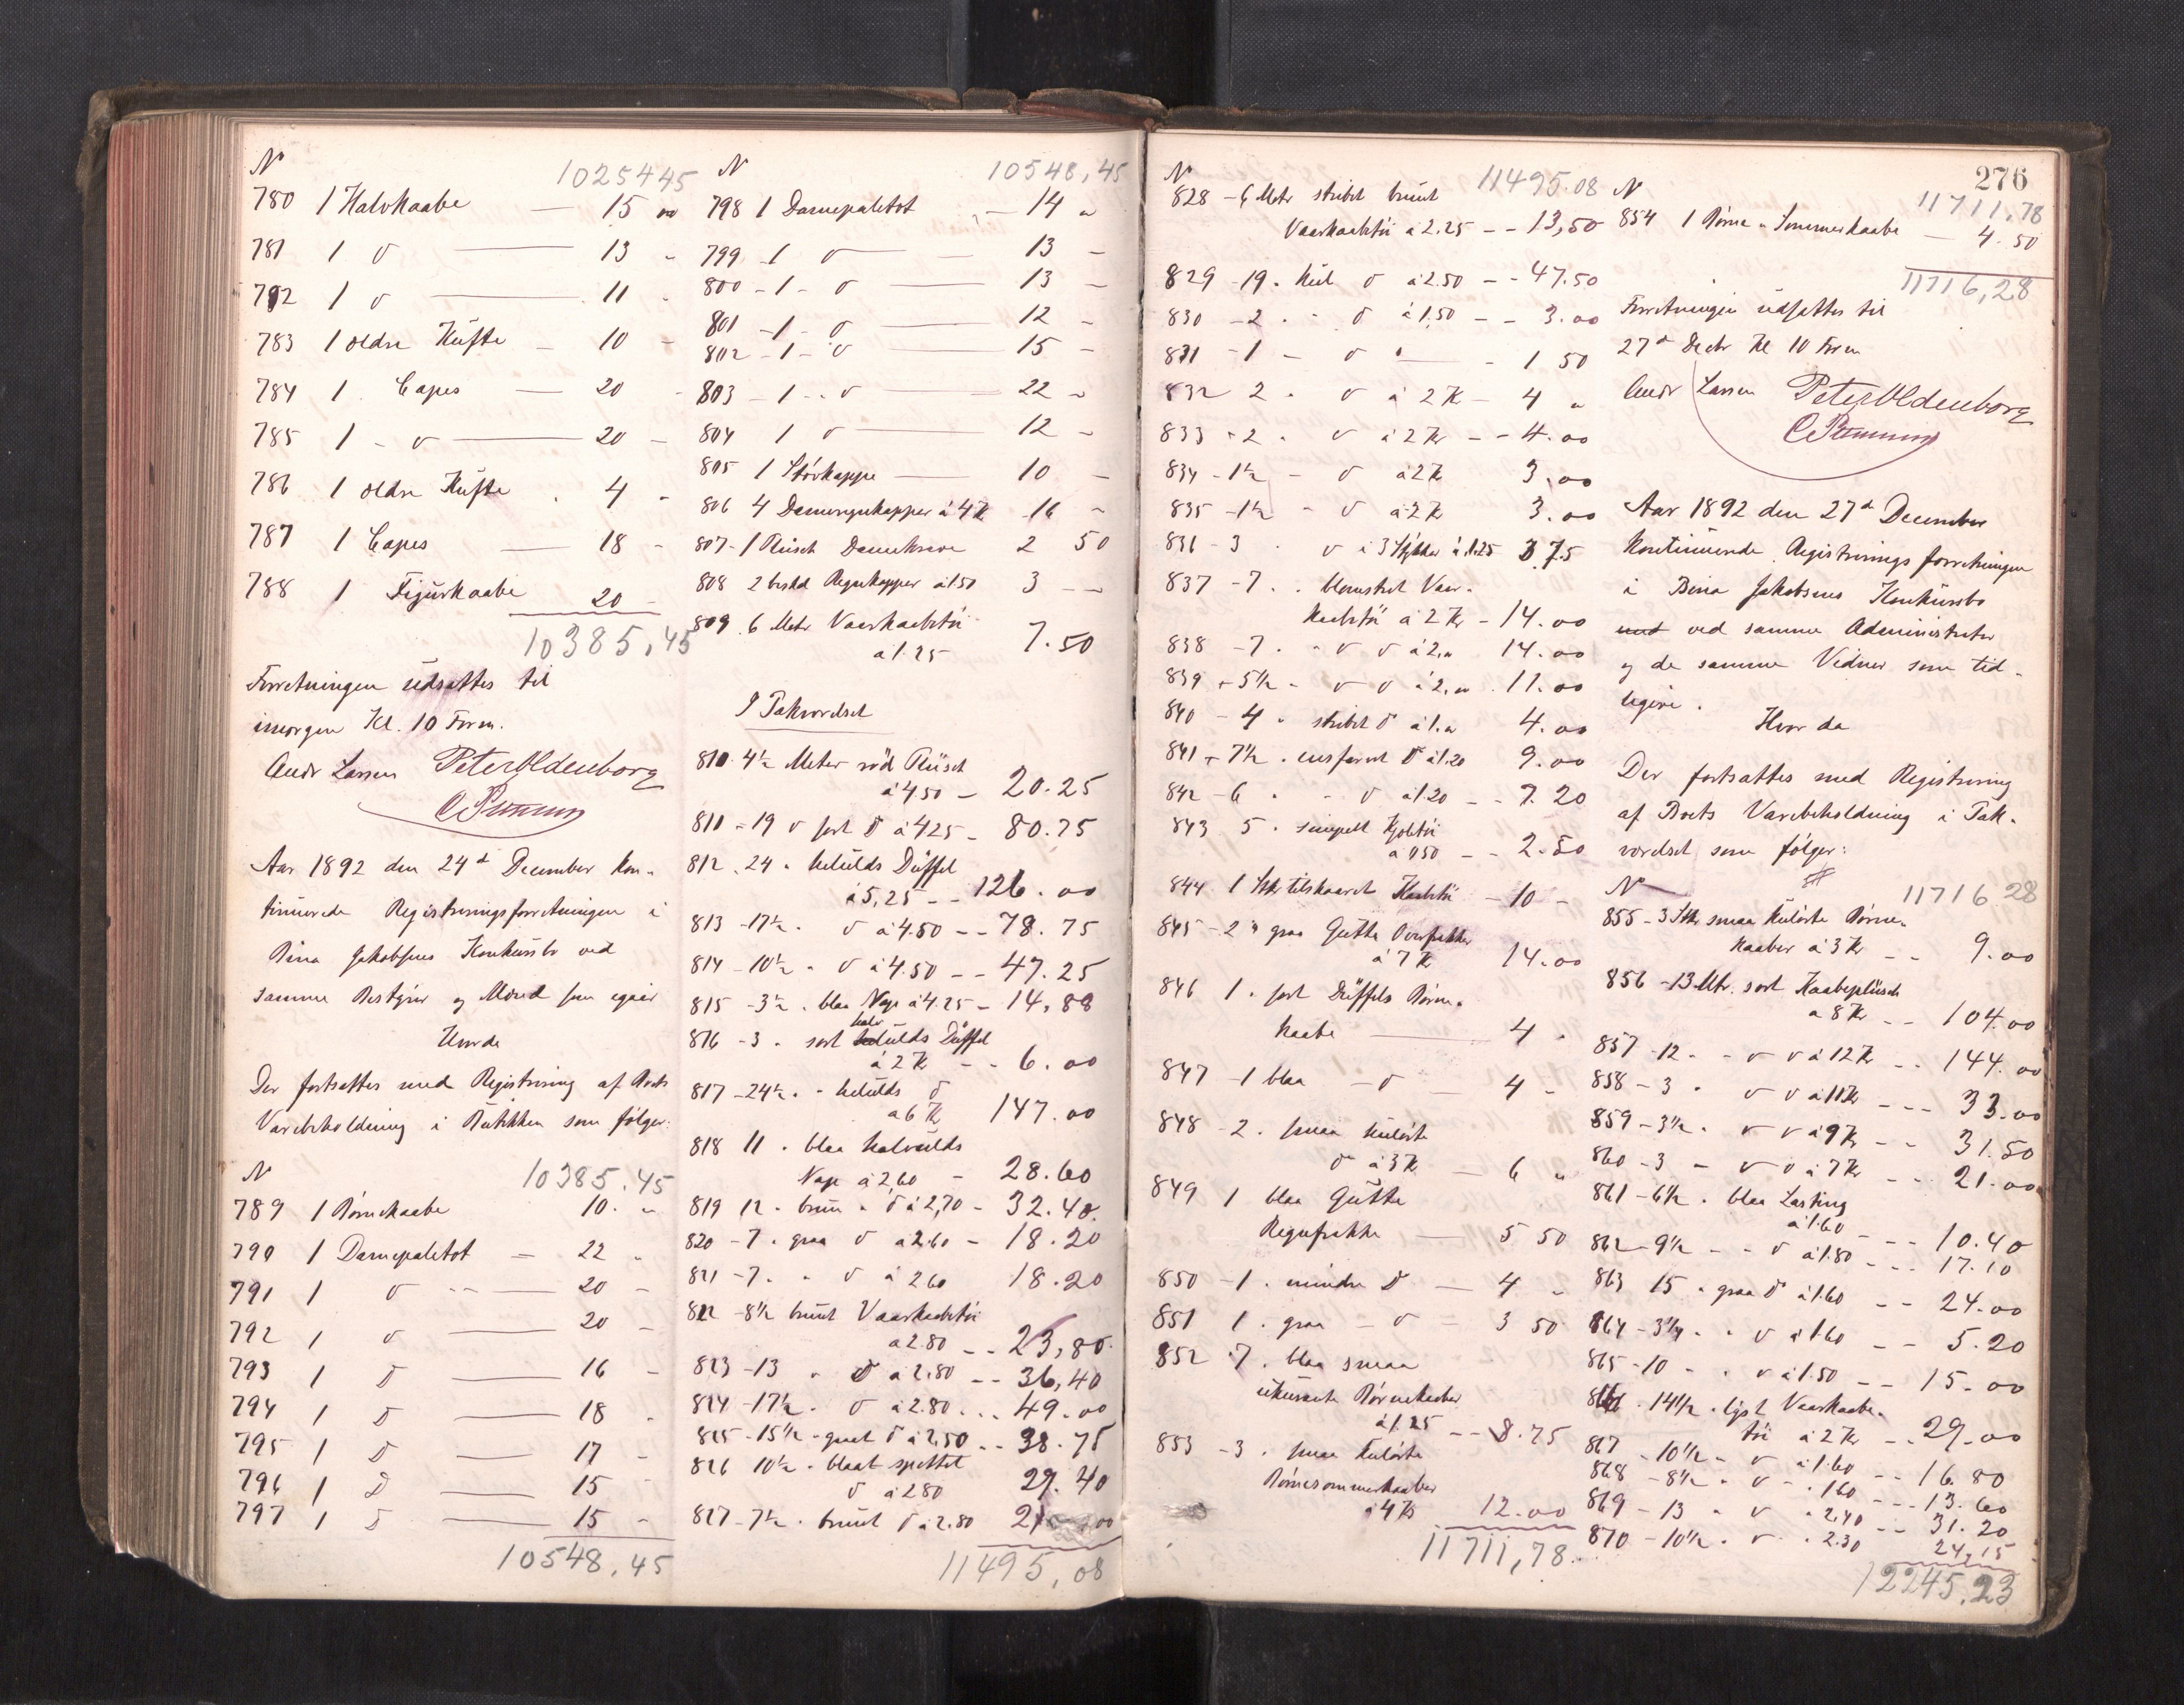 N 1025445
780 1 Halvkaabe — 15 "
781 1 d — 13 "
782 1 d — 11 "
783 1 ældre Küfte — 10 "
784 1 Capes — 20 "
785 1 - d — 20 "
786 1 ældre Küfte . 4 "
787 1 Capes — 18 "
788 1 Figürkaabe 20 "
10385,45
Forretningen üdsattes til
imorgen Kl. 10 Form.
Andr Larsen Peter Oldenborg
Aar 1892 den 24de December kon-
tinuerede Registreringsforretningen i
Bina Jakobsens Konkürsbo ved
samme Bestyrer og Mænd som igaar
Hvorda
Der fortsattes med Registrering af Boets
Varebeholdning i Bütikken som følger:
N 10385.45
789 1 Børnekaabe 10. "
790 1 Damepaletot — 22 "
791 1 d — 20 "
792 1 d — 20 "
793 1 d — 16 "
794 1 d — 18 "
795 1 d — 17 "
796 1 d — 15 "
797 1 d — 15 "
10548,45
N 10548,45
798 1 Damepaletot — 14 "
799 - 1 d — 13 "
800 - 1 - d — 13 "
801 - 1 - d — 12 "
802 - 1 - d — 15 "
803 - 1 - d — 22 "
804 1 d — 12 "
805 1 Støvkappe — 10 "
806 4 Dameregnkapper à 4 Kr 16 "
807 - 1 Plüsch Damekrave 2 50
808 2 beskd Regnkapper à 1.50 3 - "
809 6 Metr Vaarkaabetöi
à 1.25 7.50
I Pakværelset
810 4½ Meter röd Plüsch
à 4.50 - 20.25
811 - 19 d sort d à 4.25 - 80.75
812 - 24 " heluulds Düffel
à 5,25 - - 126.00
813 - 17½ " d à 4.50 - - 78.75
814 - 10½ " d à 4.50 - - 47.25
815 - 3½ " blaa Nap à 4.25 - 14,88
halv
816 - 3 " sort heluulds Düffel
à 2 Kr - - 6.00
817 - 24½ " - heluulds d
à 6 Kr 147.00
818 11 " blaa halvuulds
Nap à 2,60 - 28.60
819 12 " brün " d à 2,70 - 32.40
820 - 7 " graa d à 2.60 - 18.20
821 - 7 " " d à 2.60 18.20
822 - 8½ brünt Vaarkaabetöi
à 2.80 - - 23,80
823 - 13 " d à 2.80 - - 36,40
824 - 17½ " d à 2.80 - - 49.00
825 - 15½ " graat d à 2,50 - - 38.75
826 10½ " blaat spættet
d à 2.80 29.40
827 - 7½ " brünt d à 2.80 21.00
11495,08
276
N 11495.08
828 - 6 Metr stribet brünt
Vaarkaabetöi à 2.25 - - 13,50
829 - 19 " kül d à 2.50 - - 47.50
830 - 2 " - d à 1,50 - - 3.00
831 - 1 - d " — 1 50
832 2 " d à 2 Kr - 4 "
833 - 2 " d à 2 Kr - - 4.00
834 - 1½ - d à 2 Kr 3.00
835 - 1½ - d à 2 Kr 3.00
836 - 3 " d i 3 Stykker à 1.25 3 75
837 - 7 " . blomstret Vaar-
kaabetöi à 2 Kr - 14.00
838 - 7 " - d d à 2,00 14.00
839 - 5½ - d d à 2,00 11.00
840 - 4 " stribet d à 1.00 4.00
841 - 7½ " ensfarvet d à 1.20 9.00
842 - 6 " - d à 1.20 - - 7.20
843 5 " simpelt Kjoletöi
à 0.50 - - 2.50
844 1 Stk tilskaaret Kaabetöi - 10 -
845 - 2 " graa Gütte Overfrakker
à 7 Kr 14.00
846 1 " sort Düffels Børne-
kaabe — 4 "
847 - 1 blaa - d — 4 "
848 - 2 " smaa külörte
d à 3 Kr — 6 "
849 1 blaa Gütte
Regnfrakke — 5 50
850 - 1 " mindre d — 4 "
851 1 " graa - d - 3 50
852 7 " blaa smaa
ükürante Børnekaaber
à 1.25 - - 8.75
853 - 3 " smaa külörte
Børnesommerkaaber
à 4 Kr 12.00
11711,78
N 11711,78
854 1 Børne " Sommerkaabe — 4.50
11716,28
Forretningen üdsattes til
27de Decbr Kl 10 Form
Andr Larsen Peter Oldenborg
Aar 1892 den 27de December
kontinüerede Registreringsforretningen
i Bina Jakobsens Konkürsbo
med ved samme Administrator
og de samme Vidner som tid-
ligere.
Hvor da
Der fortsattes med Registrering
af Boets Varebeholdning i Pak-
værelset som følger:
N 11716 28
855 - 3 Stk smaa külörte Børne-
kaaber à 3 Kr - - 9.00
856 - 13 Mtr. sort Kaabeplüsch
à 8 Kr - - 104.00
857 - 12 " - d d à 12 Kr - - 144.00
858 - 3 " d d à 11 Kr - - - 33.00
859 - 3½ " d d à 9 Kr - - 31.50
860 - 3 - d d à 7 Kr - - - 21.00
861 - 6½ " blaa Lasting
à 1.60 - - - 10.40
862 - 9½ - - d à 1.80 - - - 17.10
863 15 " graa d à 1.60 - - 24.00
864 - 3¼ " " d à 1.60 - - 5.20
865 - 10 - " d à 1.50 - - 15.00
866 " 14½ " lyst Vaarkaabe-
töi à 2 Kr - - 29.00
867 - 10½ - d à 1.60 - - 16.80
868 - 8½ " d - " 1.60 - - - 13.60
869 - 13 " d " 2,40 - - 31.20
870 - 10½ " d " 2.30 24,15
12245,23